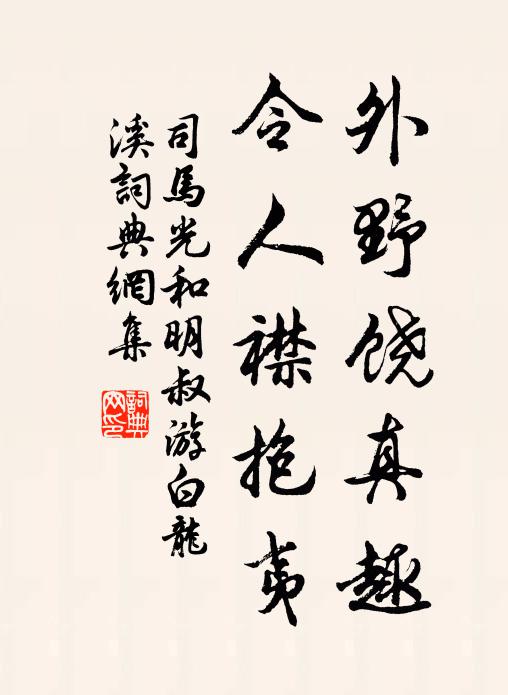 外野饶真趣
令人襟抱夷
司馬光和明叔游白龍
溪詞典網集
詞典
网印